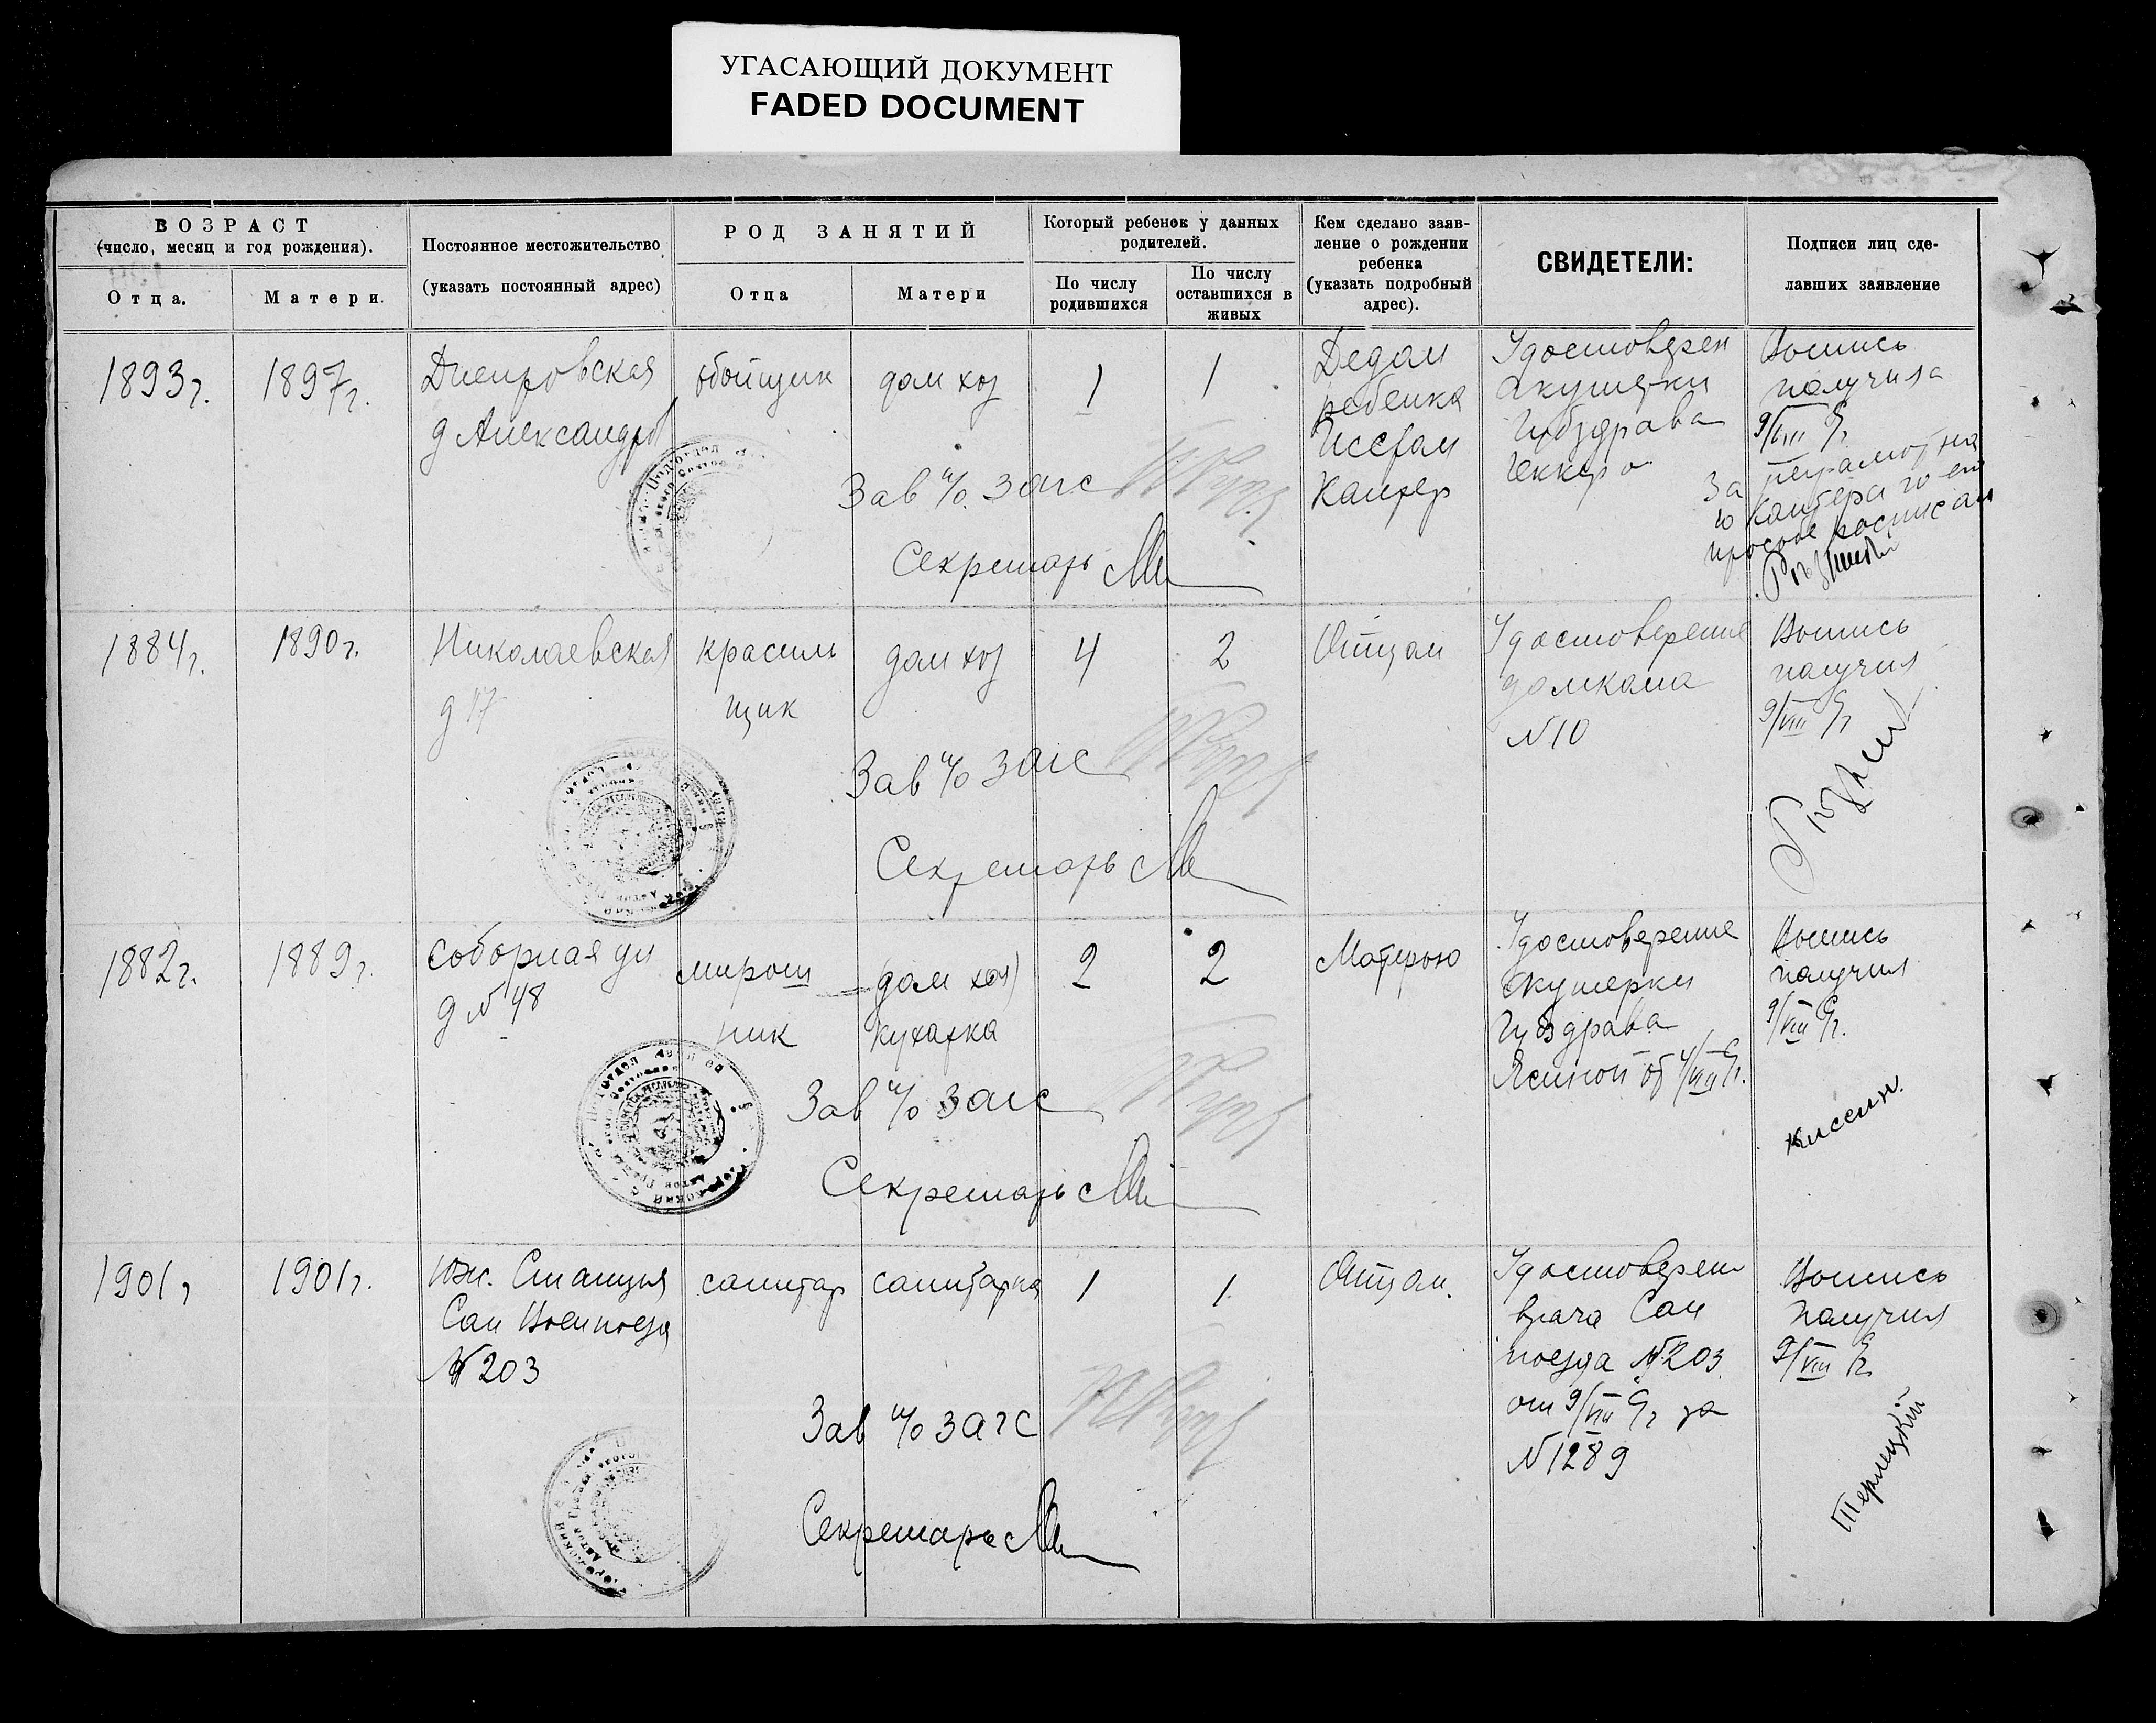 УГАСАЮЩИЙ ДОКУМЕНТ
FADED DOCUMENT
ВОЗРАСТ
(число, месяц и год рождения).
Отца.
Матери.
Постоянное местожительство
(указать постоянный адрес)
РОД ЗАНЯТИЙ
Отца
Матери
Который ребенок у данных
родителей.
По числу
родившихся
По числу
оставшихся в
живых
Кем сделано заяв-
ление о рождении
ребенка
(указать подробный
адрес).
СВИДЕТЕЛИ:
Подписи лиц сде-
лавших заявление
1893г.
1897г.
Днепровская
д Александров
обойщик
дом хоз
1
1
Дедом
ребенка
Канфер
Удостоверен
акушерки
Губздрава
Геккер
Выпись
получила
9/VIII
За неграмотна
просьбе росписал
Зав п/о загс
Секретарь
1884г.
1890г.
Николаевская
д 17
красиль
щик
дом хоз
4
2
Отцом
Удостоверение
домкома
N10
Выпись
получил
9/VIII
Зав п/о загс
Секретарь
1882г.
1889г.
Соборная ул
д N 48
мирош
ник
(дом хоз)
кухарка
2
2
Матерью
Удостоверение
акушерки
Губздрава
Ясиной от 4/VIII
Выпись
получил
9/VIII
Киссин.
Зав п/о загс
Секретарь
1901г
1901г.
Юж. Станция
Сан Военпоезд
№203
санитар
санитарка
1
1.
Отцом.
Удостоверен
врача Сан
поезда №203
от 9/VIII за
N1289
Выпись
получил
9/VIII
Терлецкий
Зав п/о загс
Секретарь